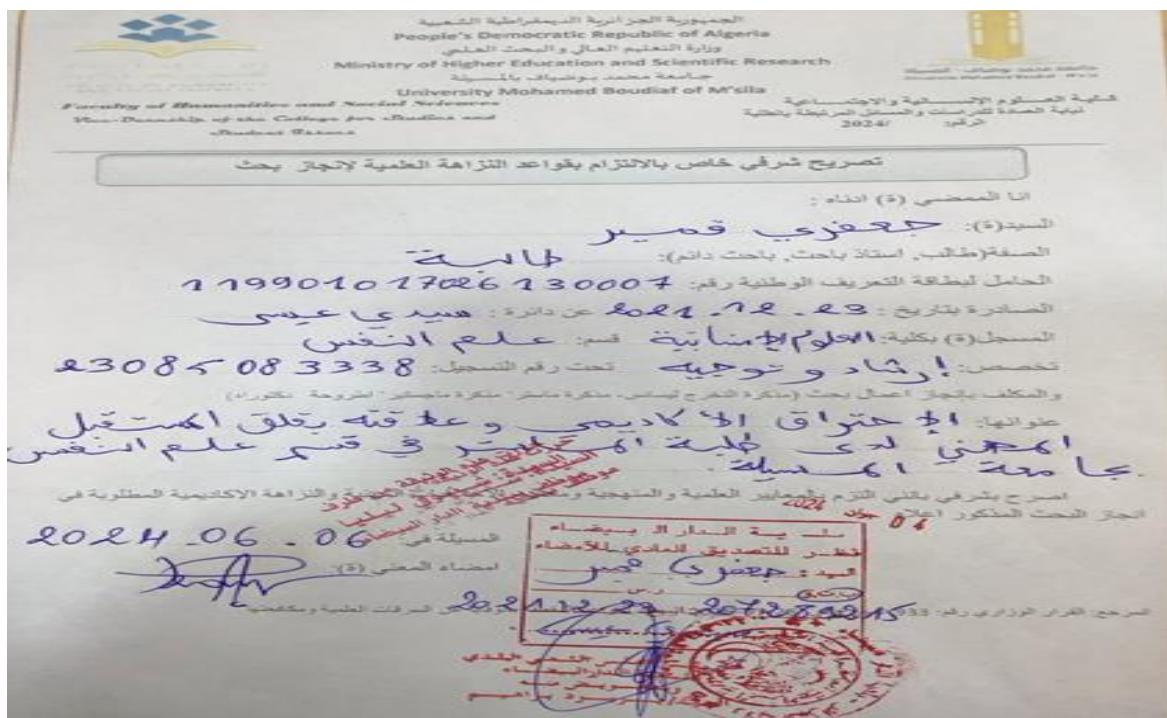 الجمهورية الجزائرية الديمقراطية الشعبية
People's Democratic Republic of Algeria
وزارة التعليم العالي والبحث العلمي
Ministry of Higher Education and Scientific Research
جامعة محمد بوضياف بالمسيلة
University Mohamed Boudiaf of M'sila
Faculty of Humanities and Social Sciences
Vice-Deanship of the College for Studies and
Student
كلية العلوم الإنسانية والاجتماعية
نيابة العمادة للدراسات والمسائل المرتبطة بالطلبة
الرقم: /2024
تصريح شرفي خاص بالالتزام بقواعد النزاهة العلمية لإنجاز بحث
انا الممضي (ة) ادناه :
السيد(ة): جعفري قمير
الصفة(طالب, استاذ باحث, باحث دائم): طالبة
الحامل لبطاقة التعريف الوطنية رقم: 119901017026130007
الصادرة بتاريخ : 2021.12.23 عن دائرة : سيدي عيسى
المسجل(ة) بكلية: العلوم الإنسانية قسم: علم النفس
تخصص: إرشاد و توجيه تحت رقم التسجيل: 23085083338
والمكلف بانجاز اعمال بحث (مذكرة التخرج ليسانس، مذكرة ماستر، مذكرة ماجستير، اطروحة دكتوراه)
عنوانها: الإحتراق الأكاديمي وعلاقته بقلق المستقبل
المهني لدى طلبة الماستر في قسم علم النفس
بجامعة المسيلة.
اصرح بشرفي بانني التزم بالمعايير العلمية والمنهجية والنزاهة الاكاديمية المطلوبة في
انجاز البحث المذكور اعلاه
06 جوان 2024
المسيلة في: 2024.06.06
امضاء المعني (ة):
بلدية الدار البيضاء
نظر للتصديق المادي للأمضاء
السيد: جعفري قمير
207289215
المرجع: القرار الوزاري رقم: 933
السرقات العلمية ومكافحتها